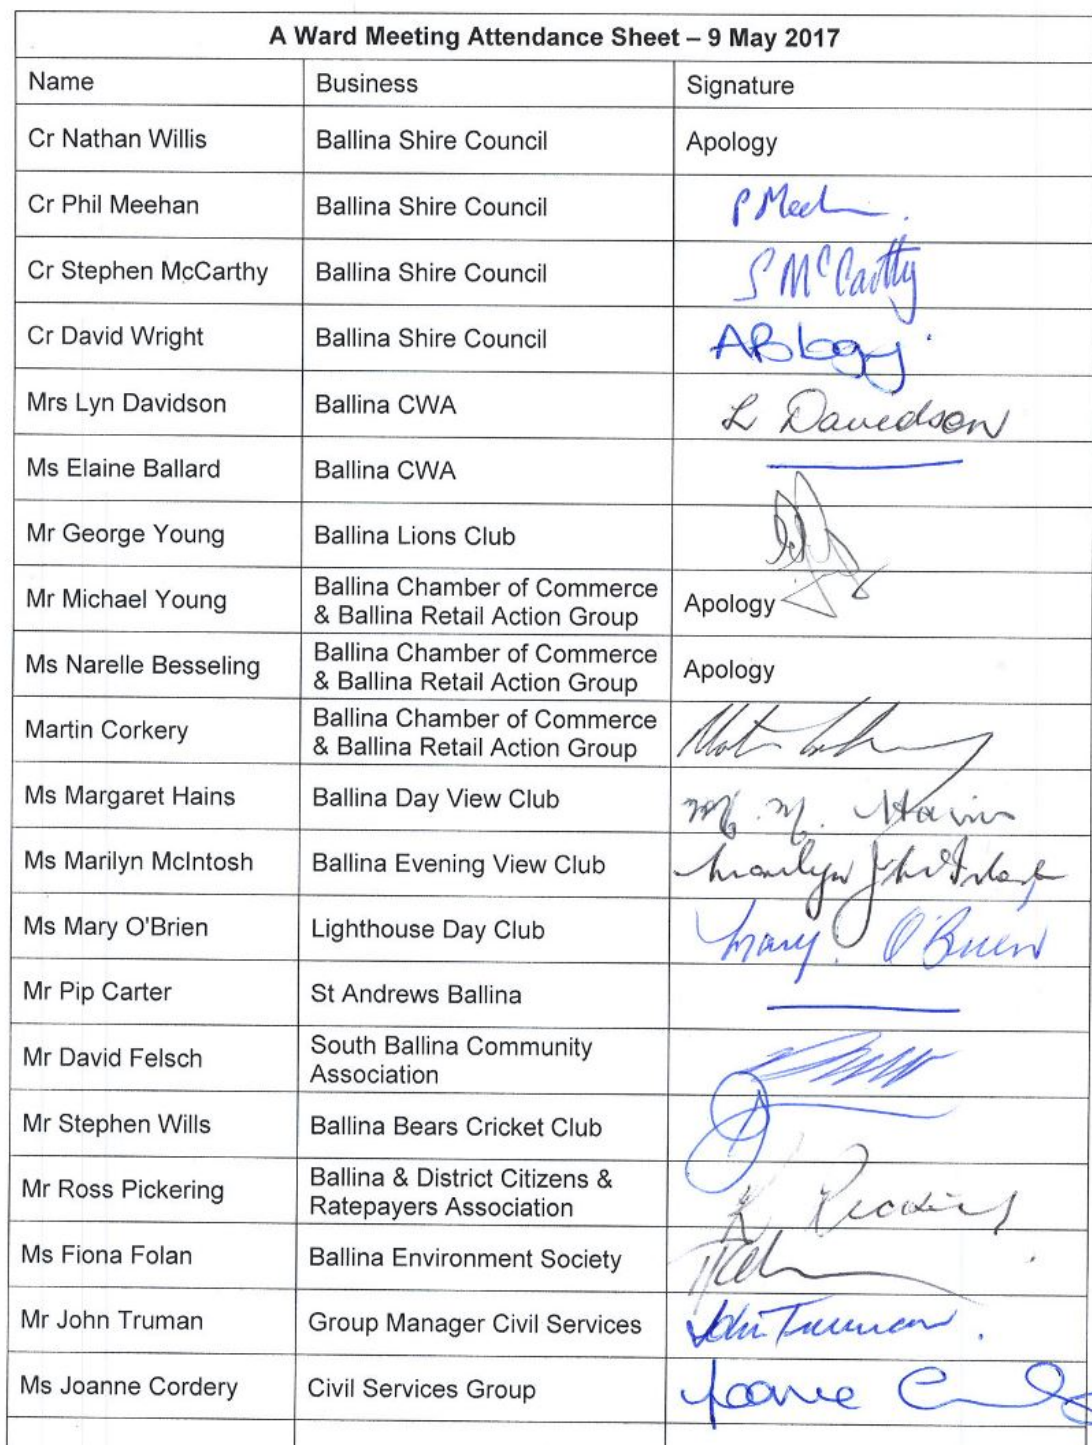 A Ward Meeting Attendance Sheet – 9 May 2017
Name Business Signature
Cr Nathan Willis Ballina Shire Council Apology
Cr Phil Meehan Ballina Shire Council P Meeh
Cr Stephen McCarthy Ballina Shire Council S McCarthy
Cr David Wright Ballina Shire Council Apology.
Mrs Lyn Davidson Ballina CWA L Davidson
Ms Elaine Ballard Ballina CWA
Mr George Young Ballina Lions Club
Mr Michael Young Ballina Chamber of Commerce
& Ballina Retail Action Group Apology
Ms Narelle Besseling Ballina Chamber of Commerce
& Ballina Retail Action Group Apology
Martin Corkery Ballina Chamber of Commerce
& Ballina Retail Action Group
Ms Margaret Hains Ballina Day View Club M. M. Hains
Ms Marilyn McIntosh Ballina Evening View Club Marilyn J McIntosh
Ms Mary O'Brien Lighthouse Day Club Mary O'Brien
Mr Pip Carter St Andrews Ballina
Mr David Felsch South Ballina Community
Association
Mr Stephen Wills Ballina Bears Cricket Club
Mr Ross Pickering Ballina & District Citizens &
Ratepayers Association
Ms Fiona Folan Ballina Environment Society
Mr John Truman Group Manager Civil Services John Truman.
Ms Joanne Cordery Civil Services Group Joanne